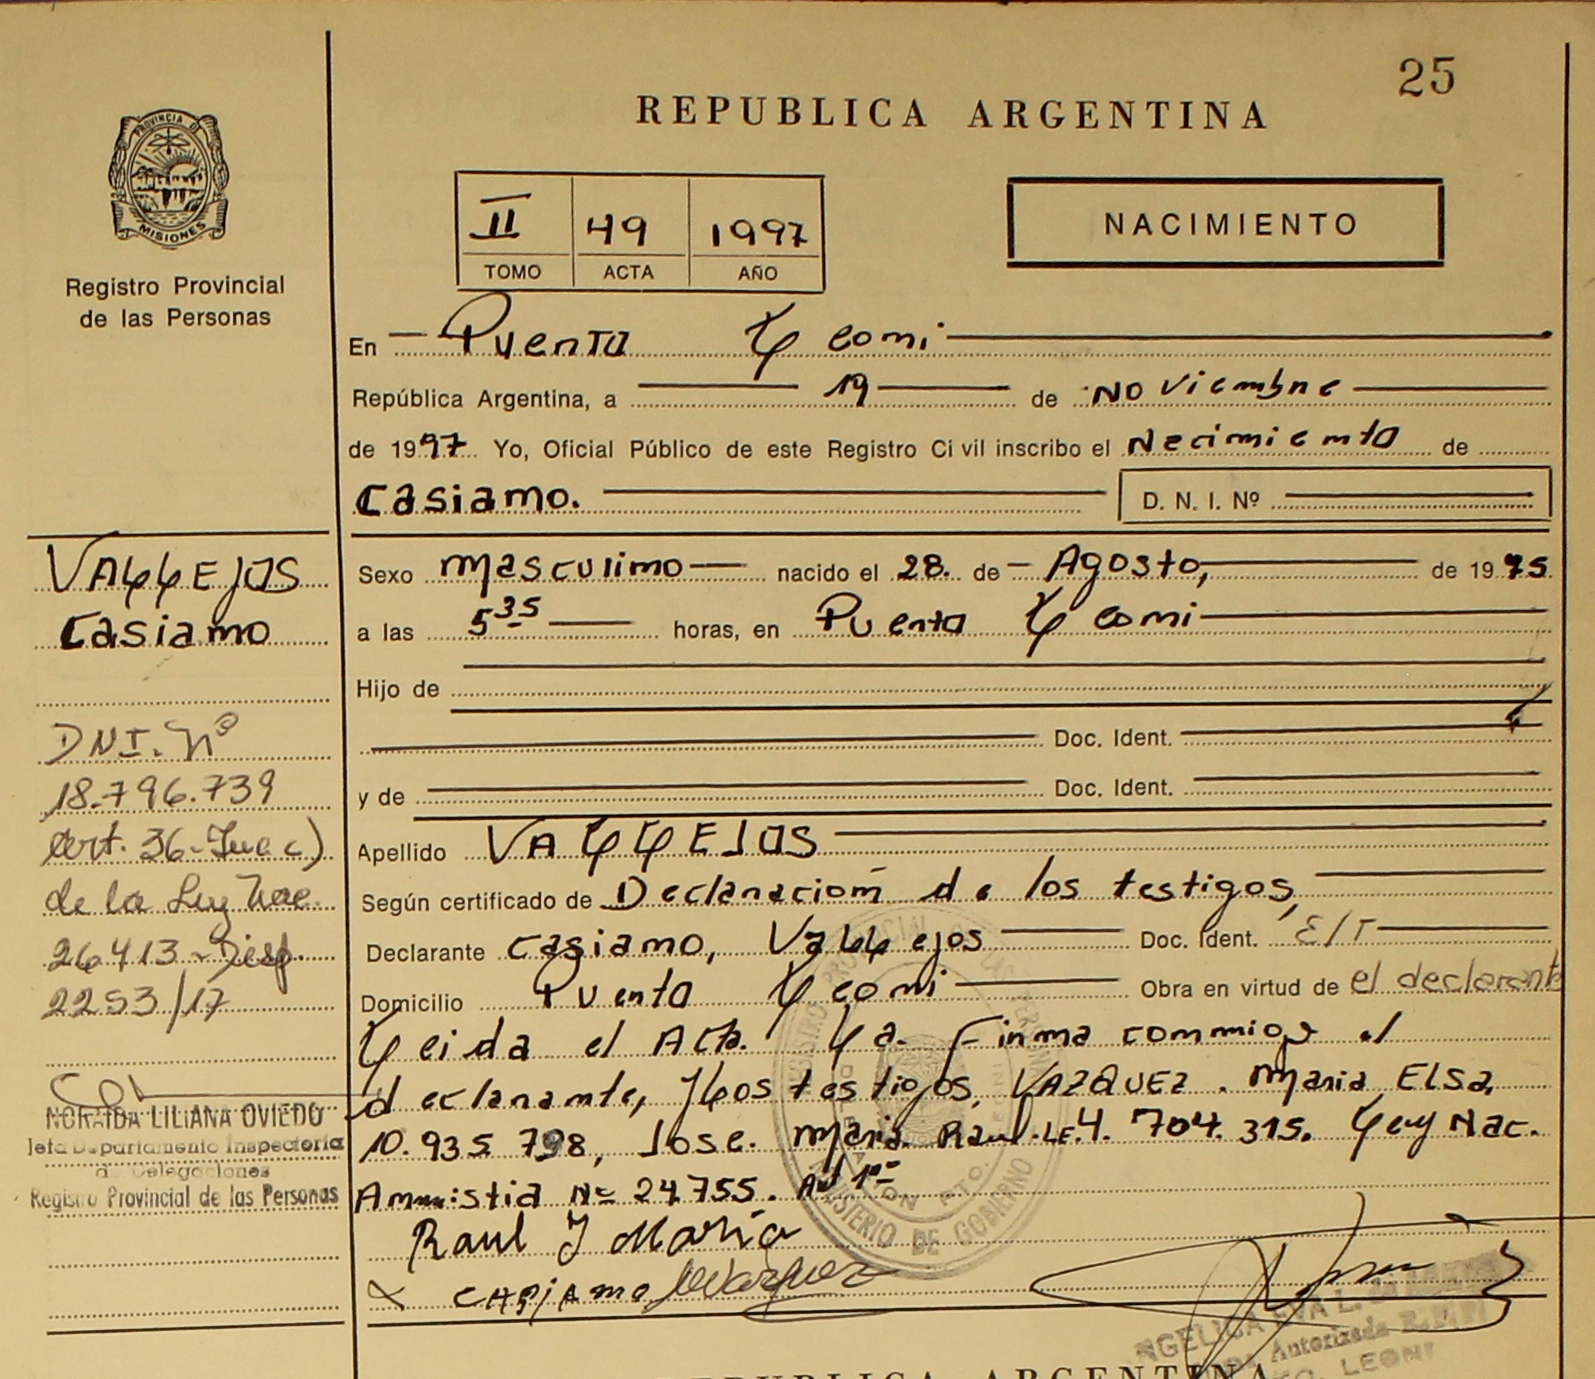 25
REPUBLICA ARGENTINA
PROVINCIA DE
MISIONES
Registro Provincial
de las Personas
II 49 1997
TOMO ACTA AÑO
NACIMIENTO
En Puerto Leoni
República Argentina, a 19 de Noviembre
de 1997 Yo, Oficial Público de este Registro Civil inscribo el Nacimiento de
Casiano. D. N. I. Nº
VALLEJOS
Casiano
DNI. Nº
18.796.739
Art. 36-Inc c)
de la Ley Nac.
26413-Disp.
2253/17
NORAIDA LILIANA OVIEDO
Jefa Departamento Inspectoria
de Delegaciones
Registro Provincial de las Personas
Sexo Masculino nacido el 28 de Agosto, de 1975
a las 5 35 horas, en Puerto Leoni
Hijo de
Doc. Ident.
y de Doc. Ident.
Apellido VALLEJOS
Según certificado de Declaración de los testigos,
Declarante Casiano, Vallejos Doc. Ident. E/T
Domicilio Puerto Leoni Obra en virtud de el declarante
Leida el Acta. La. Firma conmigo el
declarante, y Los testigos, VAZQUEZ. Maria Elsa,
10.935 798, Jose. Maria. Raul. LE. 4. 704. 315. Ley Nac.
Amnistia Nº 24755. Art 1º
Raul J Maria
CASIANO MVazquez
MINISTERIO DE GOBIERNO
ANGELICA EVA L.
Autorizada
PTO. LEONI
REPUBLICA ARGENTINA